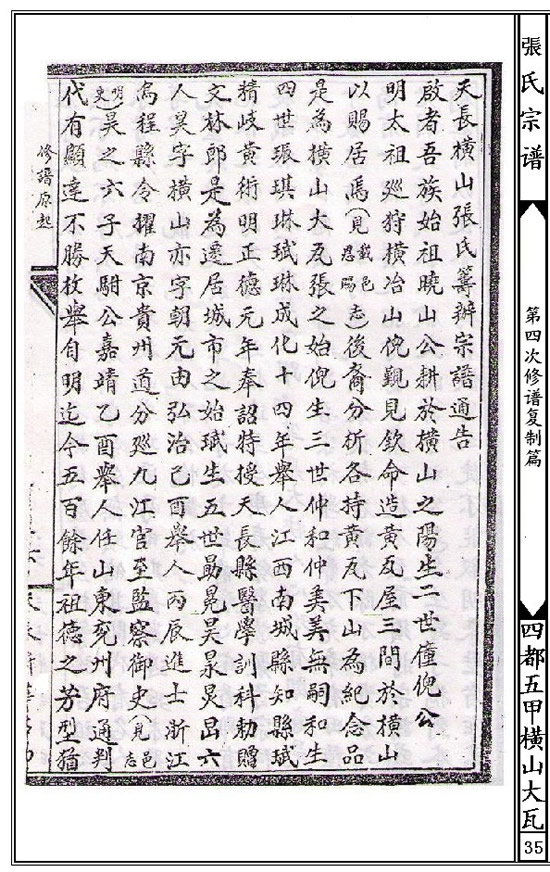 張氏宗谱
第四次修谱复制篇
四都五甲橫山大瓦
35
天長橫山張氏籌辦宗譜通告
啟者吾族始祖曉山公耕於橫山之陽生二世僮倪公
明太祖廵狩橫冶山倪覲見欽命造黃瓦屋三間於橫山
以賜居焉(見載邑恩賜志)後裔分析各持黃瓦下山為紀念品
是為橫山大瓦張之始倪生三世仲和仲美美無嗣和生
四世琅琪琳珷琳成化十四年舉人江西南城縣知縣珷
精岐黃術明正德元年奉詔特授天長縣醫學訓科勅贈
文林郎是為遷居城市之始珷生五世勗晃昊景炅昌六
人昊字橫山亦字朝元由弘治己酉舉人丙辰進士浙江
烏程縣令擢南京貴州道分廵九江官至監察御史(見邑志
明史)昊之六子天駙公嘉靖乙酉舉人任山東兗州府通判
代有顯達不勝枚舉自明迄今五百餘年祖德之芳型猶
修譜原起